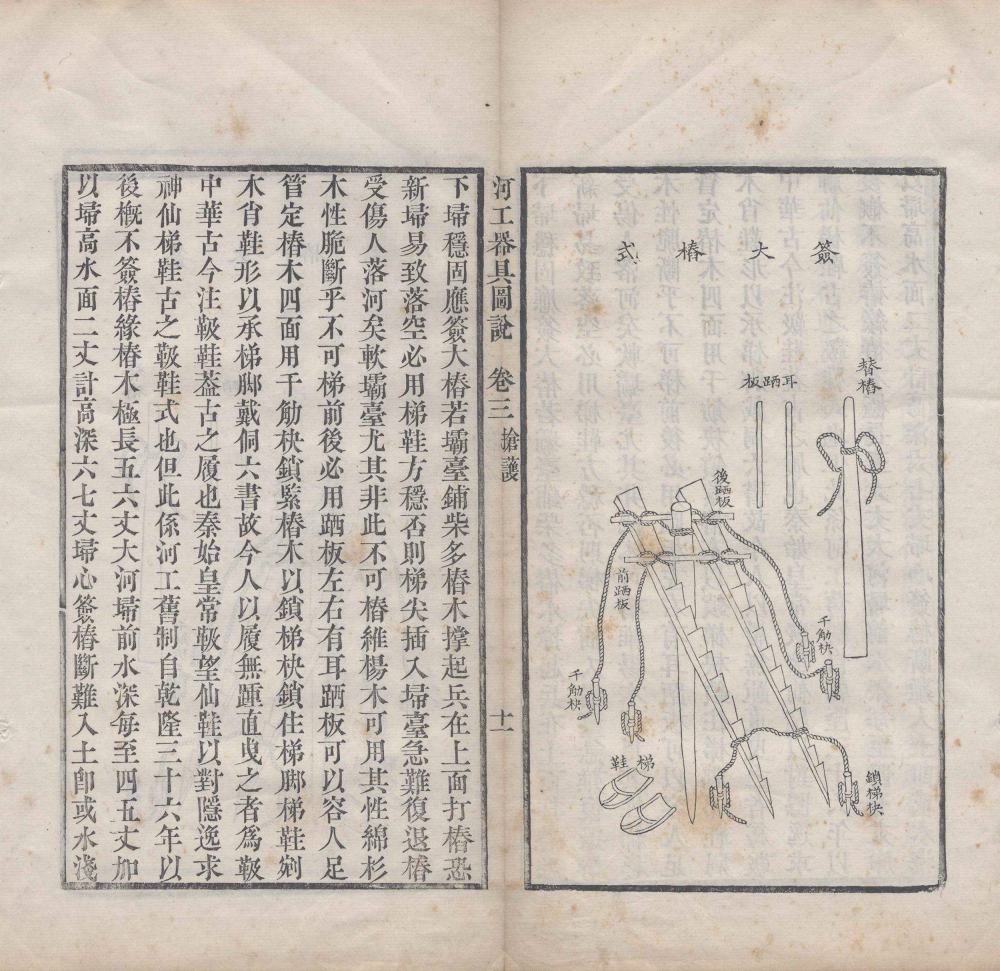 簽大樁式
替樁
耳跴板
後跴板
前跴板
千觔柍
千觔柍
梯鞋
鎖梯柍
河工器具圖說
卷三
搶護
十一
下埽穩固應簽大樁若壩臺鋪柴多樁木撐起兵在上面打樁恐
新埽易致落空必用梯鞋方穩否則梯尖插入埽臺急難復退樁
受傷人落河矣軟壩臺尤其非此不可樁維楊木可用其性綿杉
木性脆斷乎不可梯前後必用跴板左右有耳跴板可以容人足
管定樁木四面用千觔柍鎖緊樁木以鎖梯柍鎖住梯腳梯鞋剜
木肖鞋形以承梯腳戴侗六書故今人以履無踵直曳之者爲靸
中華古今注靸鞋葢古之履也秦始皇常靸望仙鞋以對隱逸求
神仙梯鞋古之靸鞋式也但此係河工舊制自乾隆三十六年以
後概不簽樁緣樁木極長五六丈大河埽前水深每至四五丈加
以埽高水面二丈計高深六七丈埽心簽樁斷難入土卽或水淺